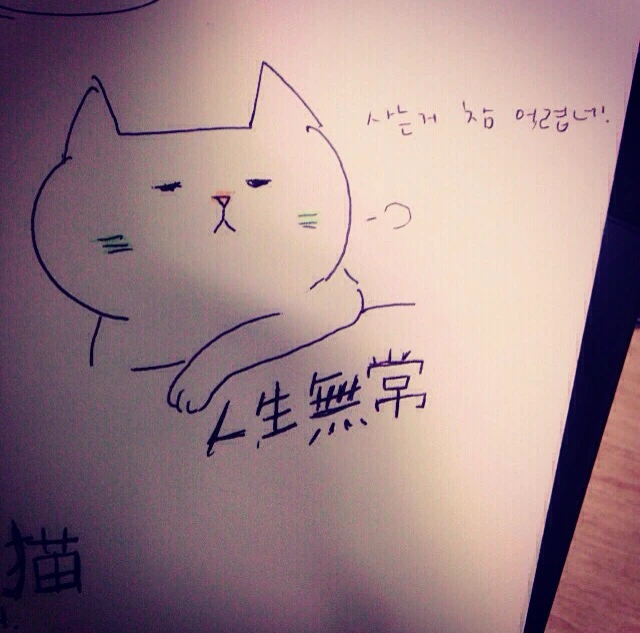 사는거 참 어렵네!
人生無常
猫